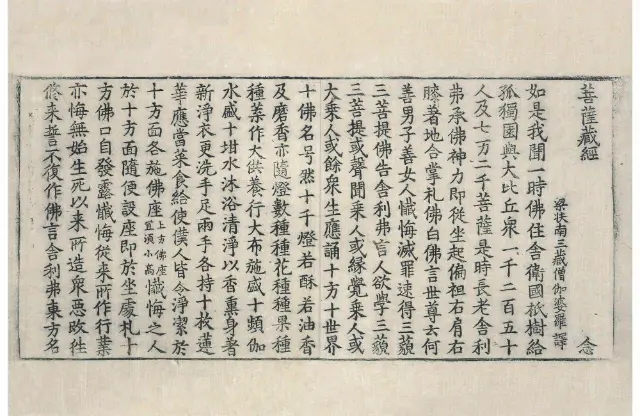 菩薩藏經 念
梁扶南三藏僧伽婆羅譯
如是我聞一時佛住舍衛國祇樹給
孤獨園與大比丘衆一千二百五十
人及七万二千菩薩是時長老舍利
弗承佛神力即從坐起偏袒右肩右
膝著地合掌礼佛白佛言世尊云何
善男子善女人懺悔滅罪速得三藐
三菩提佛告舍利弗言人欲學三藐
三菩提或聲聞乗人或緣覺乗人或
大乗人或餘衆生應誦十方十世界
十佛名号然十千燈若酥若油香
及磨香亦隨燈數種種花種種果種
種葉作大供養行大布施盛十頻伽
水盛十坩水沐浴清淨以香熏身著
新淨衣更洗手足兩手各持十枚蓮
華應當菜食給使僕人皆令淨潔於
十方面各施佛座上方佛座宜須小高懺悔之人
於十方面隨使設座即於坐處礼十
方佛口自發露懺悔從来所作行業
亦悔無始生死以来所造衆惡改徃
脩来誓不復作佛言舍利弗東方名